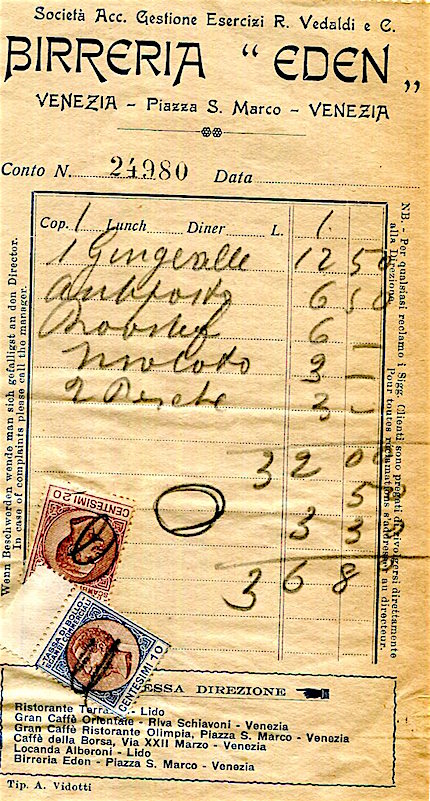 Società Acc. Gestione Esercizi R. Vedaldi e C.
BIRRERIA "EDEN"
VENEZIA - Piazza S. Marco - VENEZIA
Conto N. 24980 Data
Cop. 1 Lunch Diner L. 1.
1 Gingeralle 12 50
Antipasto 6 50
6 -
3 -
2 Pesche 3 -
32 00
5
3 3
36 8
NB. - Per qualsiasi reclamo i Sigg. Clienti sono pregati di rivolgersi direttamente alla Direzione.
Pour toutes réclamations s'adresser au directeur.
Wenn Beschwerden wende man sich gefälligst an don Director.
In case of complaints please call the manager.
CENTESIMI 20
SCAMBI
TASSA DI BOLLO
SCAMBI COMMERCIALI
CENTESIMI 10
ESSA DIREZIONE
Ristorante Terra - Lido
Gran Caffè Orientale - Riva Schiavoni - Venezia
Gran Caffè Ristorante Olimpia, Piazza S. Marco - Venezia
Caffè della Borsa, Via XXII Marzo - Venezia
Locanda Alberoni - Lido
Birreria Eden - Piazza S. Marco - Venezia
Tip. A. Vidotti